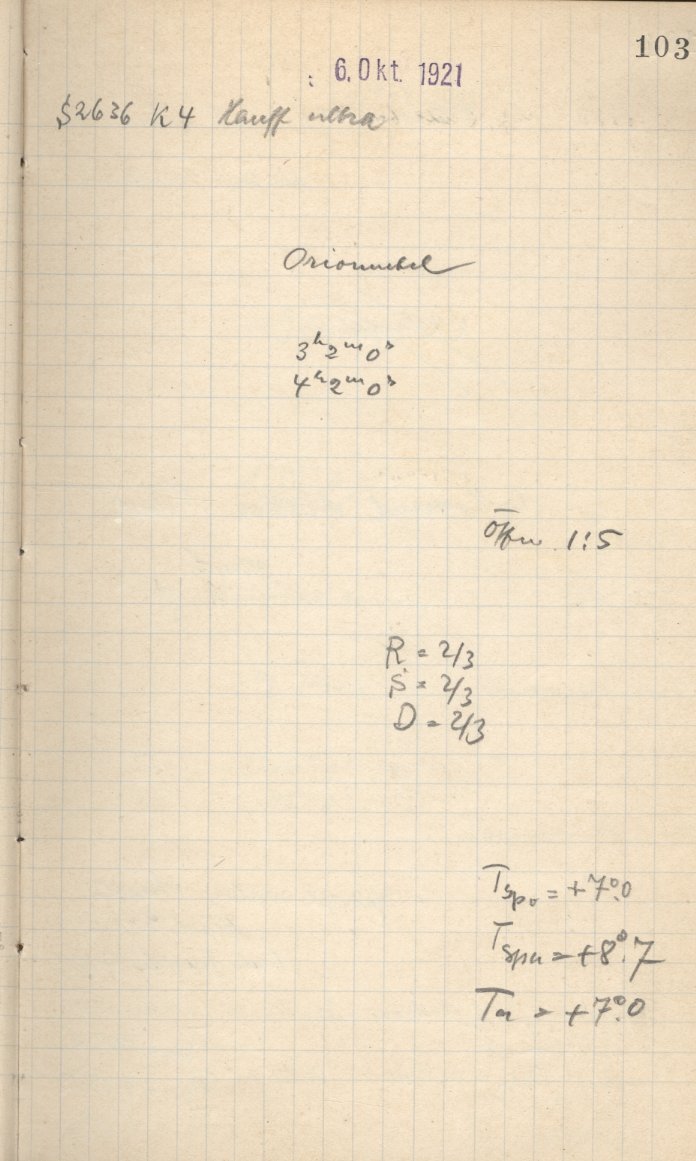 103
6. Okt. 1921
S2636 K4 Hauff ultra
Orionnebel
3ʰ2ᵐ0ˢ
4ʰ2ᵐ0ˢ
Öffn 1:5
R = 2/3
S = 2/3
D = 2/3
Tspo = +7°.0
Tspu = +8°.7
Ta = +7°.0